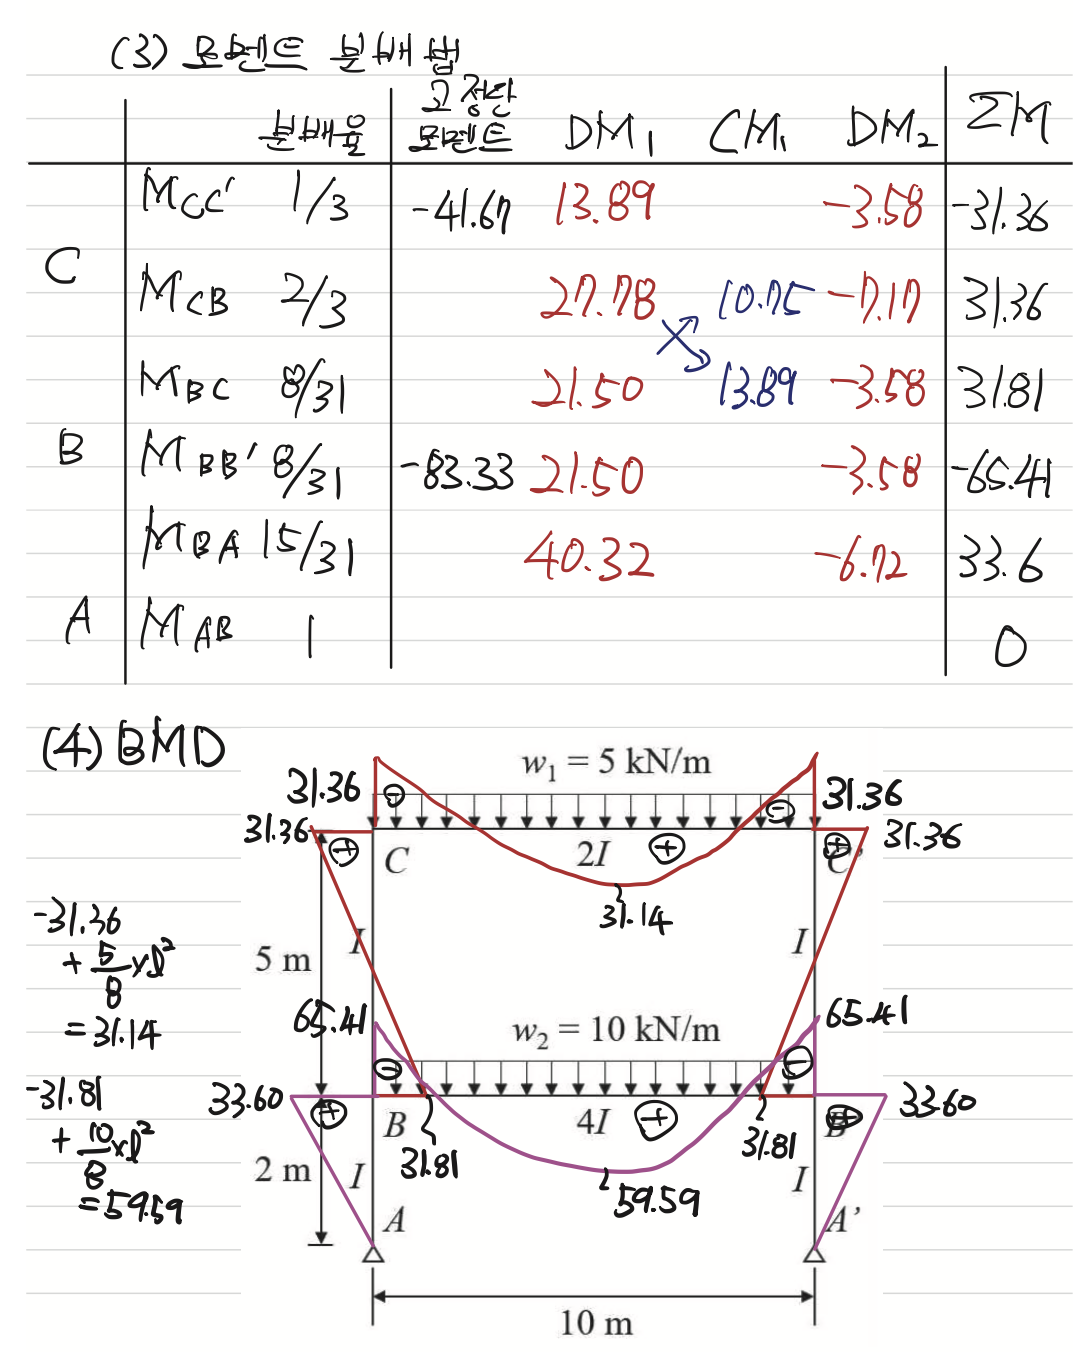 (3) 모멘트 분배법
분배율 고정단모멘트 DM₁ CM₁ DM₂ ΣM
C
M_CC' 1/3 -41.67 13.89 -3.58 -31.36
M_CB 2/3 27.78 10.75 -7.17 31.36
B
M_BC 8/31 21.50 13.89 -3.58 31.81
M_BB' 8/31 -83.33 21.50 -3.58 -65.41
M_BA 15/31 40.32 -6.72 33.6
A
M_AB 1 0
(4) BMD
w₁ = 5 kN/m
31.36 ⊖ ⊖ 31.36
31.36 ⊕ C 2I ⊕ ⊕ C' 31.36
31.14
-31.36
+ 5/8 × l²
= 31.14
5 m I I
65.41 w₂ = 10 kN/m 65.41
⊖ ⊖
-31.81
+ 10/8 × l²
= 59.59
33.60 ⊕ B 4I ⊕ ⊕ B' 33.60
31.81 31.81
2 m I 59.59 I
A A'
10 m